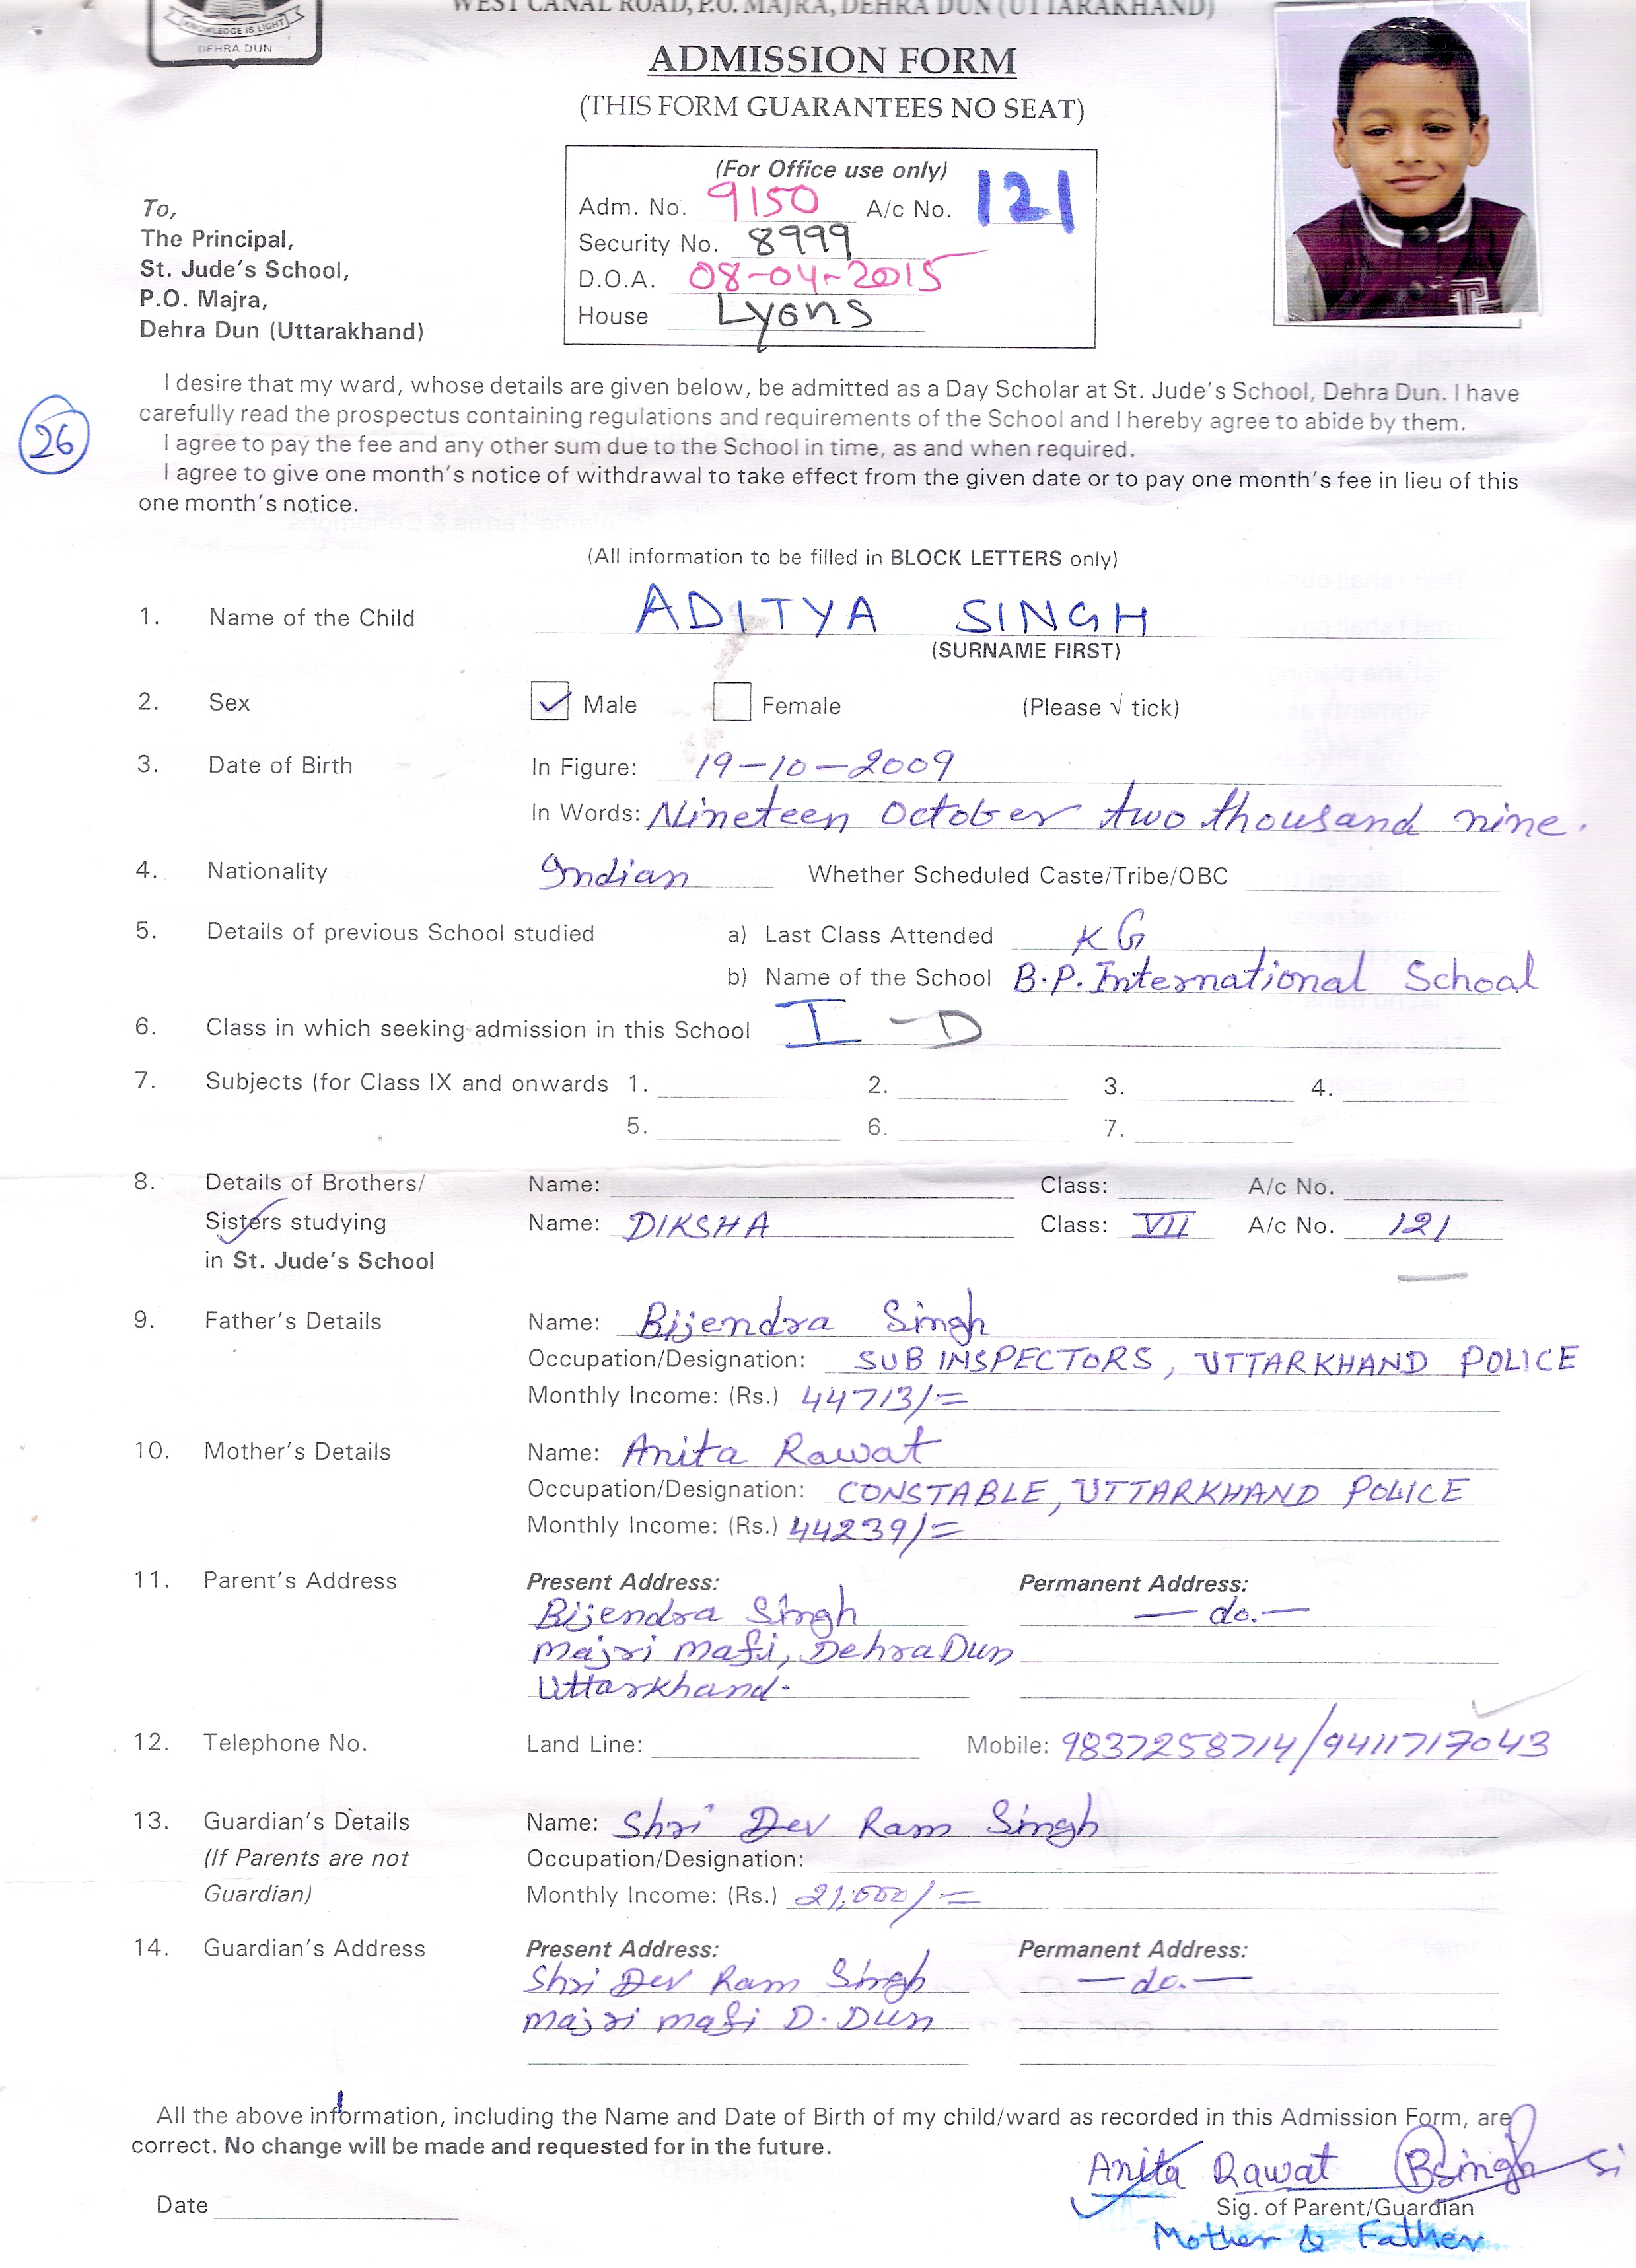 WEST CANAL ROAD, P.O. MAJRA, DEHRA DUN (UTTARAKHAND)
KNOWLEDGE IS LIGHT
DEHRA DUN
ADMISSION FORM
(THIS FORM GUARANTEES NO SEAT)
(For Office use only)
Adm. No. 9150 A/c No. 121
Security No. 8999
D.O.A. 08-04-2015
House Lyons
To,
The Principal,
St. Jude's School,
P.O. Majra,
Dehra Dun (Uttarakhand)
I desire that my ward, whose details are given below, be admitted as a Day Scholar at St. Jude's School, Dehra Dun. I have
carefully read the prospectus containing regulations and requirements of the School and I hereby agree to abide by them.
26
I agree to pay the fee and any other sum due to the School in time, as and when required.
I agree to give one month's notice of withdrawal to take effect from the given date or to pay one month's fee in lieu of this
one month's notice.
(All information to be filled in BLOCK LETTERS only)
1. Name of the Child ADITYA SINGH
(SURNAME FIRST)
2. Sex ✓ Male Female (Please √ tick)
3. Date of Birth In Figure: 19-10-2009
In Words: Nineteen October two thousand nine.
4. Nationality Indian Whether Scheduled Caste/Tribe/OBC
5. Details of previous School studied a) Last Class Attended KG
b) Name of the School B.P. International School
6. Class in which seeking admission in this School I - D
7. Subjects (for Class IX and onwards 1. 2. 3. 4.
5. 6. 7.
8. Details of Brothers/ Name: Class: A/c No.
Sisters studying Name: DIKSHA Class: VII A/c No. 121
in St. Jude's School
9. Father's Details Name: Bijendra Singh
Occupation/Designation: SUB INSPECTORS, UTTARKHAND POLICE
Monthly Income: (Rs.) 44713/=
10. Mother's Details Name: Anita Rawat
Occupation/Designation: CONSTABLE, UTTARKHAND POLICE
Monthly Income: (Rs.) 44239/=
11. Parent's Address Present Address: Permanent Address:
Bijendra Singh — do. —
Majri Mafi, DehraDun
Uttarkhand.
12. Telephone No. Land Line: Mobile: 9837258714/9411717043
13. Guardian's Details Name: Shri Dev Ram Singh
(If Parents are not Occupation/Designation:
Guardian) Monthly Income: (Rs.) 21,000/=
14. Guardian's Address Present Address: Permanent Address:
Shri Dev Ram Singh — do. —
Majri Mafi D. Dun
All the above information, including the Name and Date of Birth of my child/ward as recorded in this Admission Form, are
correct. No change will be made and requested for in the future.
Anita Rawat BSingh Si
Date Sig. of Parent/Guardian
Mother & Father